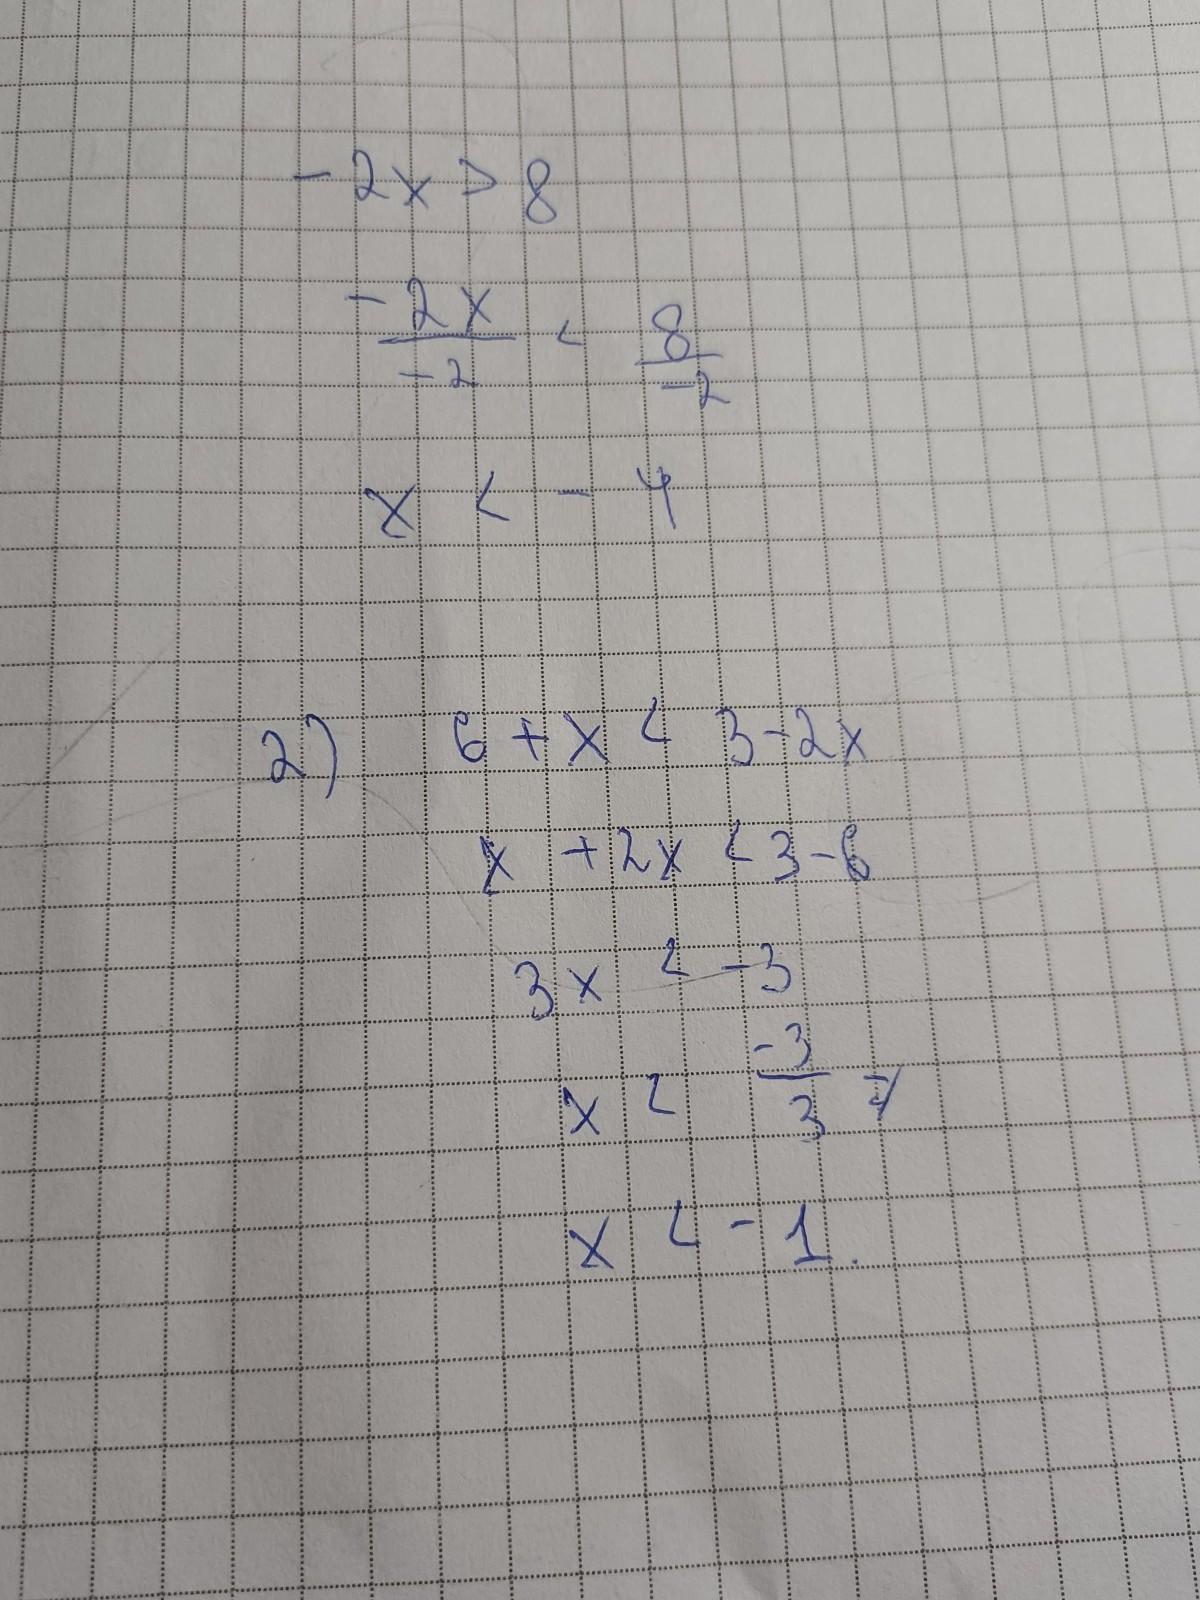 -2x > 8
-2x/-2 < 8/-2
x < -4
2) 6 + x < 3 - 2x
x + 2x < 3 - 6
3x < -3
x < -3/3
x < -1.